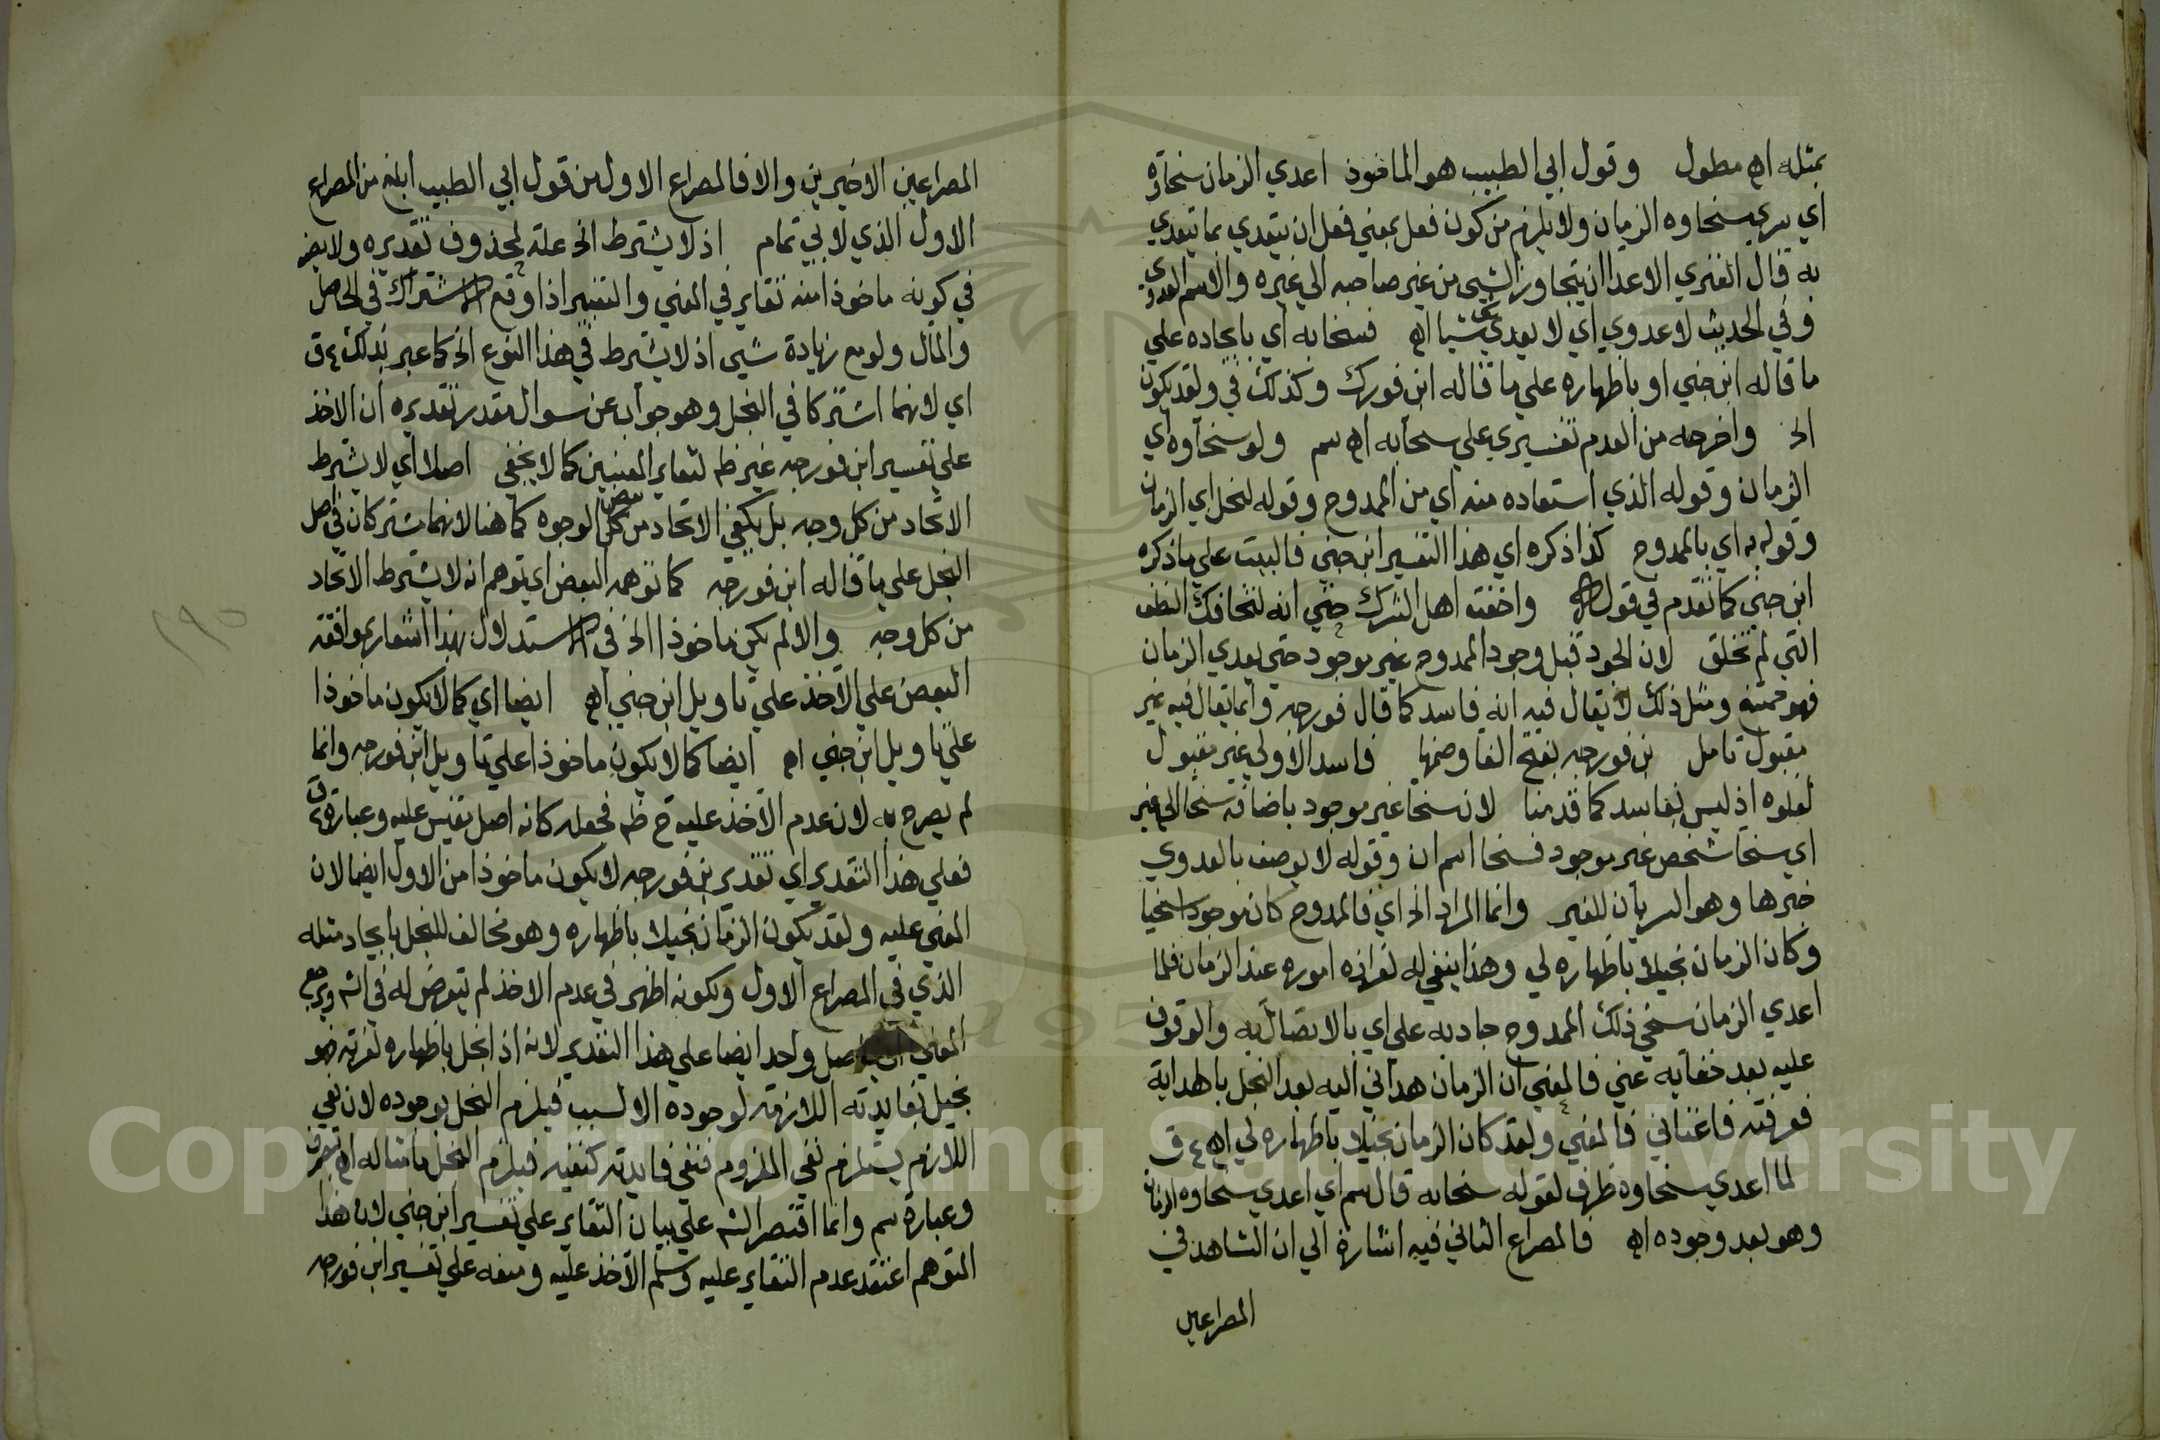 بمثله اه مطول وقول ابي الطيب هو الماخوذ اعدي الزمان سخاوه
اي سري سخاوه الزمان ولا يلزم من كون فعل بمعني فعل ان يتعدي بما يتعدي
به قال الفنري الاعدا ان يتجاوز الشيى من غير صاحبه الي غيره والاسم العدوي
وفي الحديث لا عدوي اي لا يعدي شيا اه فسخا به اي بايجاده علي
ما قاله ابن جني او باظهاره علي ما قاله ابن فورك وكذلك في ولقد يكون
الخ واخرجه من العدم تفسيري علي سخابه اه سم ولو سخاوه اي
الزمان وقوله الذي استعاده منه اي من الممدوح وقوله لبخل اي الزمان
وقوله به اي بالممدوح كذا ذكره اي هذا التفسير ابن جني فالبيت علي ما ذكره
ابن جني كما تقدم في قوله واخفت اهل الشرك حتي انه لتخافك النطف
التي لم تخلق لان الجود قبل وجود الممدوح غير موجود حتي يعدي الزمان
فهو ممتنع ومثل ذلك لا يقال فيه انه فاسد كما قال فورجه وانما يقال فيه غير
مقبول تامل بن فورجه بفتح الفا وضمها فاسد الاولي غير مقبول
لغلوه اذ ليس بفاسد كما قدمنا لان سخا غير موجود باضافة سخا الي غير
اي سخا شخص غير موجود فسخا اسم ان وقوله لا يوصف بالعدوي
خبرها وهو السريان للغير وانما المراد الخ اي فالممدوح كان موجودا سخيا
وكان الزمان بخيلا باظهاره لي وهذا ينبغي له لعزازة اموره عند الزمان فلما
اعدي الزمان سخي ذلك الممدوح جاد به علي اي بالاتصال به والوقوف
عليه بعد خفايه عني فالمعني ان الزمان هداني اليه بعد البخل بالهداية
فعرفته فاغناني فالمعني ولقد كان الزمان بخيلا باظهاره لي اه ع ق
لما اعدي سخاوه ظرف لقوله سخابه قال سم اي اعدي سخاوه الزمان
وهو بعد وجوده اه فالمصراع الثاني فيه اشارة الي ان الشاهد في
المصراعين
المصراعين الاخيرين والا فالمصراع الاول من قول ابي الطيب ابلغ من المصراع
الاول الذي لابي تمام اذ لا يشترط الخ علة لمحذوف تقديره ولا يضر
في كونه ماخوذا منه تغاير في المعني والتغيير اذا وقع الاشتراك في الحاصل
والمال ولو مع زيادة شيى اذ لا يشترط في هذا النوع الخ كما عبر بذلك ع ق
اي لانهما اشتركا في البخل وهو جواب عن سوال مقدر تقديره ان الاخذ
علي تفسير ابن فورجه غير ظ لتغاير المعنيين كما لا يخفي اصلا اي لا يشترط
الاتحاد من كل وجه بل يكفي الاتحاد من بعض الوجوه كما هنا لانهما مشتركان في اصل
البخل علي ما قاله ابن فورجه كما توهمه البعض اي توهم انه لا يشترط الاتحاد
من كل وجه والا لم يكن ماخوذا الخ في الاستدلال بهذا اشعار بموافقة
البعض علي الاخذ علي تاويل ابن جني اه ايضا اي كما لا يكون ماخوذا
علي تاويل ابن جني اه ايضا كما لا يكون ماخوذا علي تاويل ابن فورجه وانما
لم يصرح به لان عدم الاخذ عليه ح ظ فجعله كانه اصل يقيس عليه وعبارة ع ق
فعلي هذا التقدير اي تقدير بن فورجه لا يكون ماخوذا من الاول ايضا لان
المعني عليه ولقد يكون الزمان بخيلا باظهاره وهو مخالف للبخل بايجاد مثله
الذي في المصراع الاول ولكونه اظهر في عدم الاخذ لم يتعرض له في الشم ويرجع
المعني الي اصل واحد ايضا علي هذا التقدير لانه اذا بخل باظهاره لعزته فهو
بخيل بفايدته اللازمة لوجوده الا لسبب فيلزم البخل بوجوده لان نفي
اللازم يستلزم نفي الملزوم فنفي فايدته كنفيه فيلزم البخل بامثاله اه بتصرف
وعبارة سم وانما اقتصر الشم علي بيان التغاير علي تفسير ابن جني لان هذا
المتوهم اعتقد عدم التغاير عليه وسلم الاخذ عليه ومنعه علي تفسير ابن فورجه
٢٩٥
Copyright © King Saud University
1957